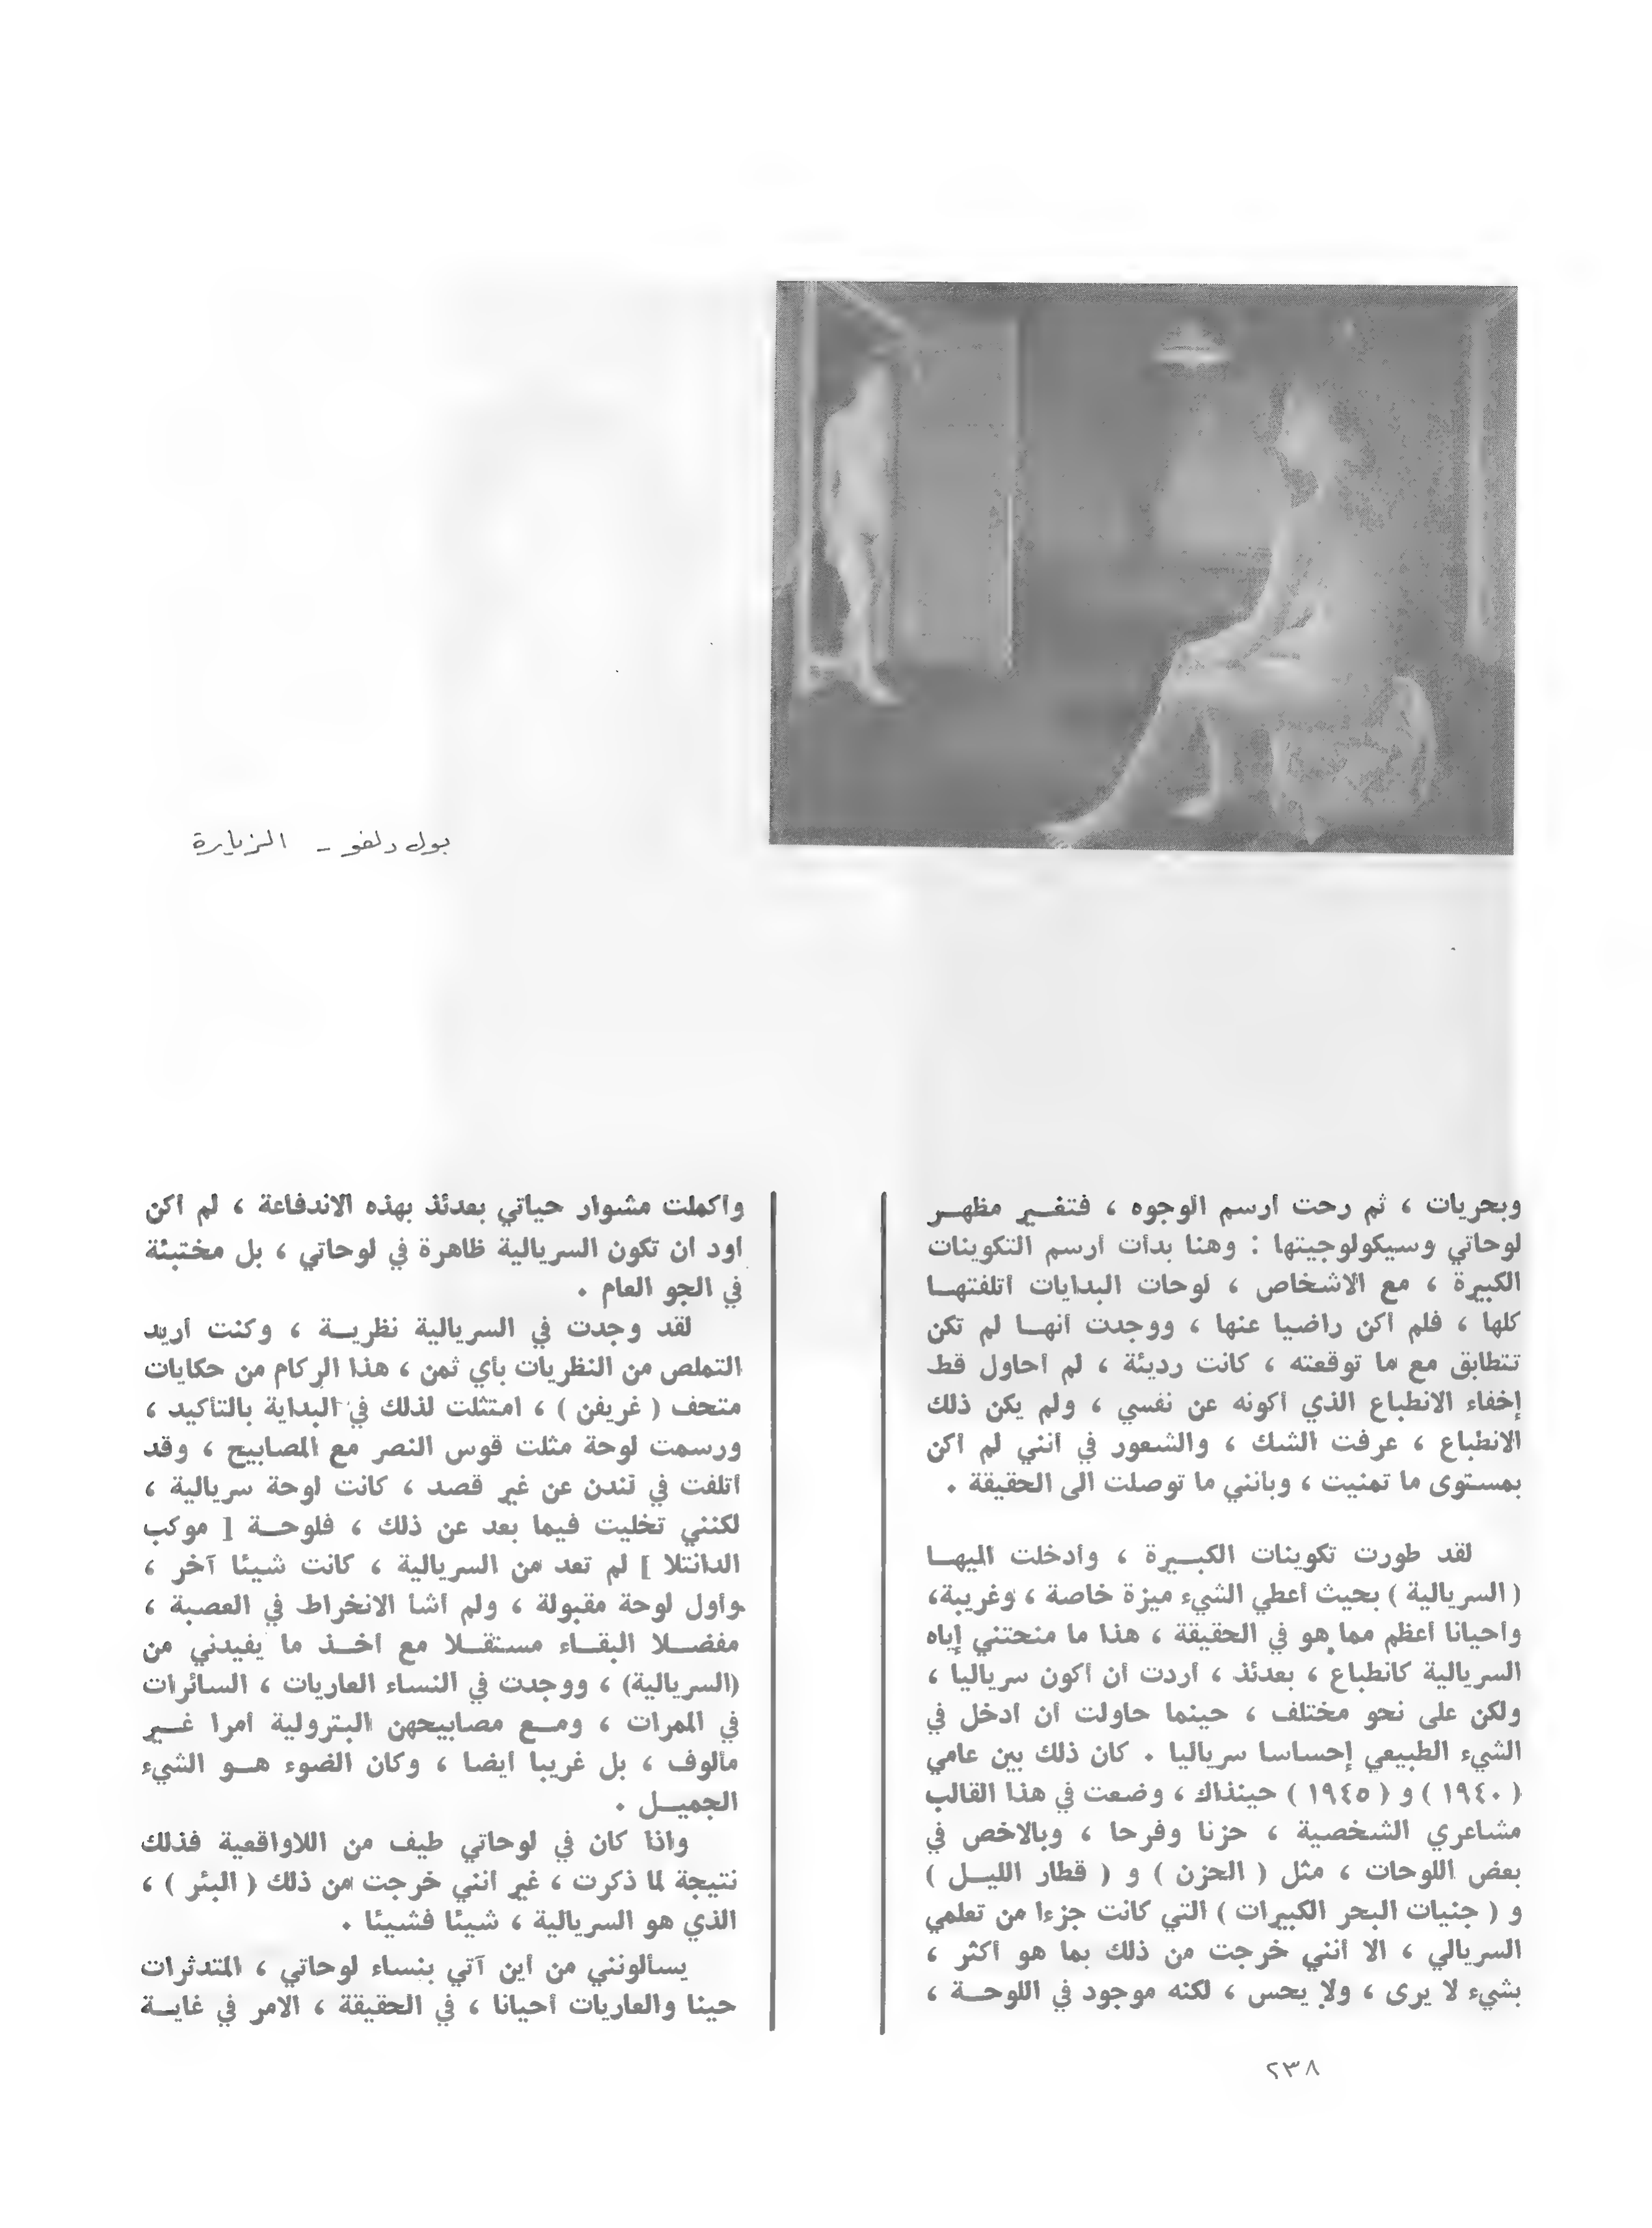 بول دلفو - الزيارة
وبحريات ، ثم رحت أرسم الوجوه ، فتغـير مظهـر
لوحاتي وسيكولوجيتها : وهنا بدأت أرسم التكوينات
الكبيرة ، مع الاشخاص ، لوحات البدايات أتلفتهـا
كلها ، فلم أكن راضيا عنها ، ووجدت أنهـا لم تكن
تتطابق مع ما توقعته ، كانت رديئة ، لم أحاول قط
إخفاء الانطباع الذي أكونه عن نفسي ، ولم يكن ذلك
الانطباع ، عرفت الشك ، والشعور في أنني لم أكن
بمستوى ما تمنيت ، وبأنني ما توصلت الى الحقيقة .
لقد طورت تكوينات الكبـيرة ، وأدخلت اليهـا
( السريالية ) بحيث أعطي الشيء ميزة خاصة ، وغريبة،
وأحيانا أعظم مما هو في الحقيقة ، هذا ما منحتني إياه
السريالية كانطباع ، بعدئذ ، أردت أن أكون سرياليا ،
ولكن على نحو مختلف ، حينما حاولت أن أدخل في
الشيء الطبيعي إحساسا سرياليا . كان ذلك بين عامي
( ١٩٤٠ ) و ( ١٩٤٥ ) حينذاك ، وضعت في هذا القالب
مشاعري الشخصية ، حزنا وفرحا ، وبالاخص في
بعض اللوحات ، مثل ( الحزن ) و ( قطار الليـل )
و ( جنيات البحر الكبيرات ) التي كانت جزءا من تعلمي
السريالي ، الا أنني خرجت من ذلك بما هو أكثر ،
بشيء لا يرى ، ولا يحس ، لكنه موجود في اللوحـة ،
وأكملت مشوار حياتي بعدئذ بهذه الاندفاعة ، لم أكن
أود أن تكون السريالية ظاهرة في لوحاتي ، بل مختبئة
في الجو العام .
لقد وجدت في السريالية نظريـة ، وكنت أريد
التملص من النظريات بأي ثمن ، هذا الركام من حكايات
متحف ( غريفن ) ، امتثلت لذلك في البداية بالتأكيد ،
ورسمت لوحة مثلت قوس النصر مع المصابيح ، وقد
أتلفت في لندن عن غير قصد ، كانت لوحة سريالية ،
لكنني تخليت فيما بعد عن ذلك ، فلوحـة [ موكب
الدانتلا ] لم تعد من السريالية ، كانت شيئا آخر ،
وأول لوحة مقبولة ، ولم أشأ الانخراط في العصبة ،
مفضـلا البقـاء مستقـلا مع أخـذ ما يفيدني من
(السريالية) ، ووجدت في النساء العاريات ، السائرات
في الممرات ، ومـع مصابيحهن البترولية أمرا غـير
مألوف ، بل غريبا أيضا ، وكان الضوء هـو الشيء
الجميـل .
واذا كان في لوحاتي طيف من اللاواقعية فذلك
نتيجة لما ذكرت ، غير أنني خرجت من ذلك ( البئر ) ،
الذي هو السريالية ، شيئا فشيئا .
يسألونني من أين آتي بنساء لوحاتي ، المتدثرات
حينا والعاريات أحيانا ، في الحقيقة ، الامر في غايـة
٢٣٨